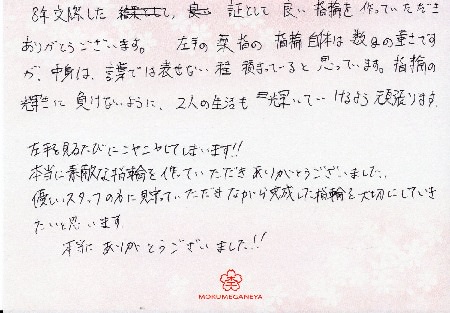 8年交際した 結果として, 良い 証として 良い 指輪を 作っていただき
ありがとうございます。 左手の 薬指の 指輪自体は 数gの重さです
が、中身は、言葉では表せない程 詰まっていると 思っています。指輪の
輝きに 負けないように、2人の生活も 輝いていけるよう 頑張ります.
左手を見るたびにニヤニヤしてしまいます!!
本当に素敵な指輪を作っていただきありがとうございました.
優しいスタッフの方に 手伝っていただきながら完成した指輪を大切にしていき
たいと思います
本当に ありがとうございました!!
MOKUMEGANEYA